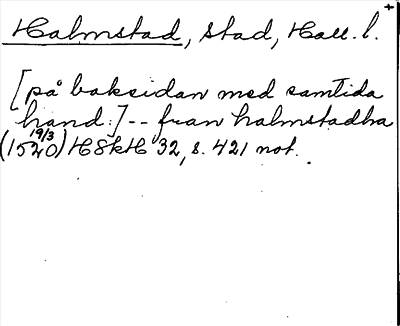 Halmstad, stad, Hall. l.
[på baksidan med samtida
hand:] -- fran halmstadha
(1520 19/3) HSkH 32, s. 421 not.